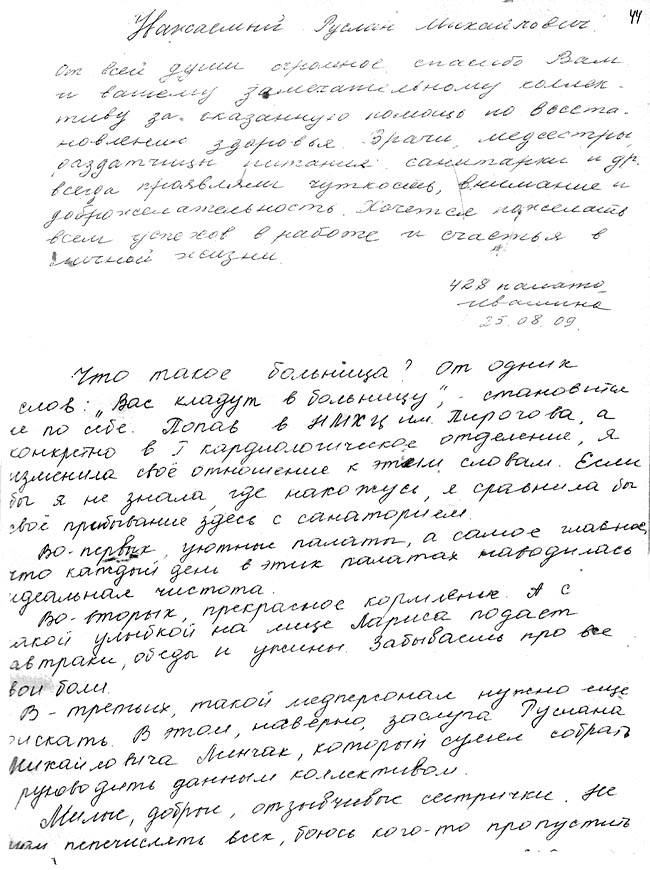 44
Уважаемый Руслан Михайлович!
От всей души огромное спасибо Вам
и вашему замечательному коллек-
тиву за оказанную помощь по восста-
новлению здоровья. Врачи, медсестры,
раздатчицы питания, санитарки и др.
всегда проявляли чуткость, внимание и
доброжелательность. Хочется пожелать
всем успехов в работе и счастья в
личной жизни.
428 палата
Ивашина
25.08.09.
Что такое больница? От одних
слов: „Вас кладут в больницу", - становится
не по себе. Попав в НМХЦ им. Пирогова, а
конкретно в I кардиологическое отделение, я
изменила своё отношение к этим словам. Если
бы я не знала, где нахожусь, я сравнила бы
своё прибывание здесь с санаторием.
Во-первых, уютные палаты, а самое главное,
что каждый день в этих палатах наводилась
идеальная чистота.
Во-вторых, прекрасное кормление. А с
какой улыбкой на лице Лариса подаёт
завтраки, обеды и ужины. Забываешь про все
свои боли.
В-третьих, такой медперсонал нужно ещё
поискать. В этом, наверно, заслуга Руслана
Михайловича Линчак, который сумел собрать
руководить данным коллективом.
Милые, добрые, отзывчивые сестрички. Не
перечислять всех, боюсь кого-то пропустить